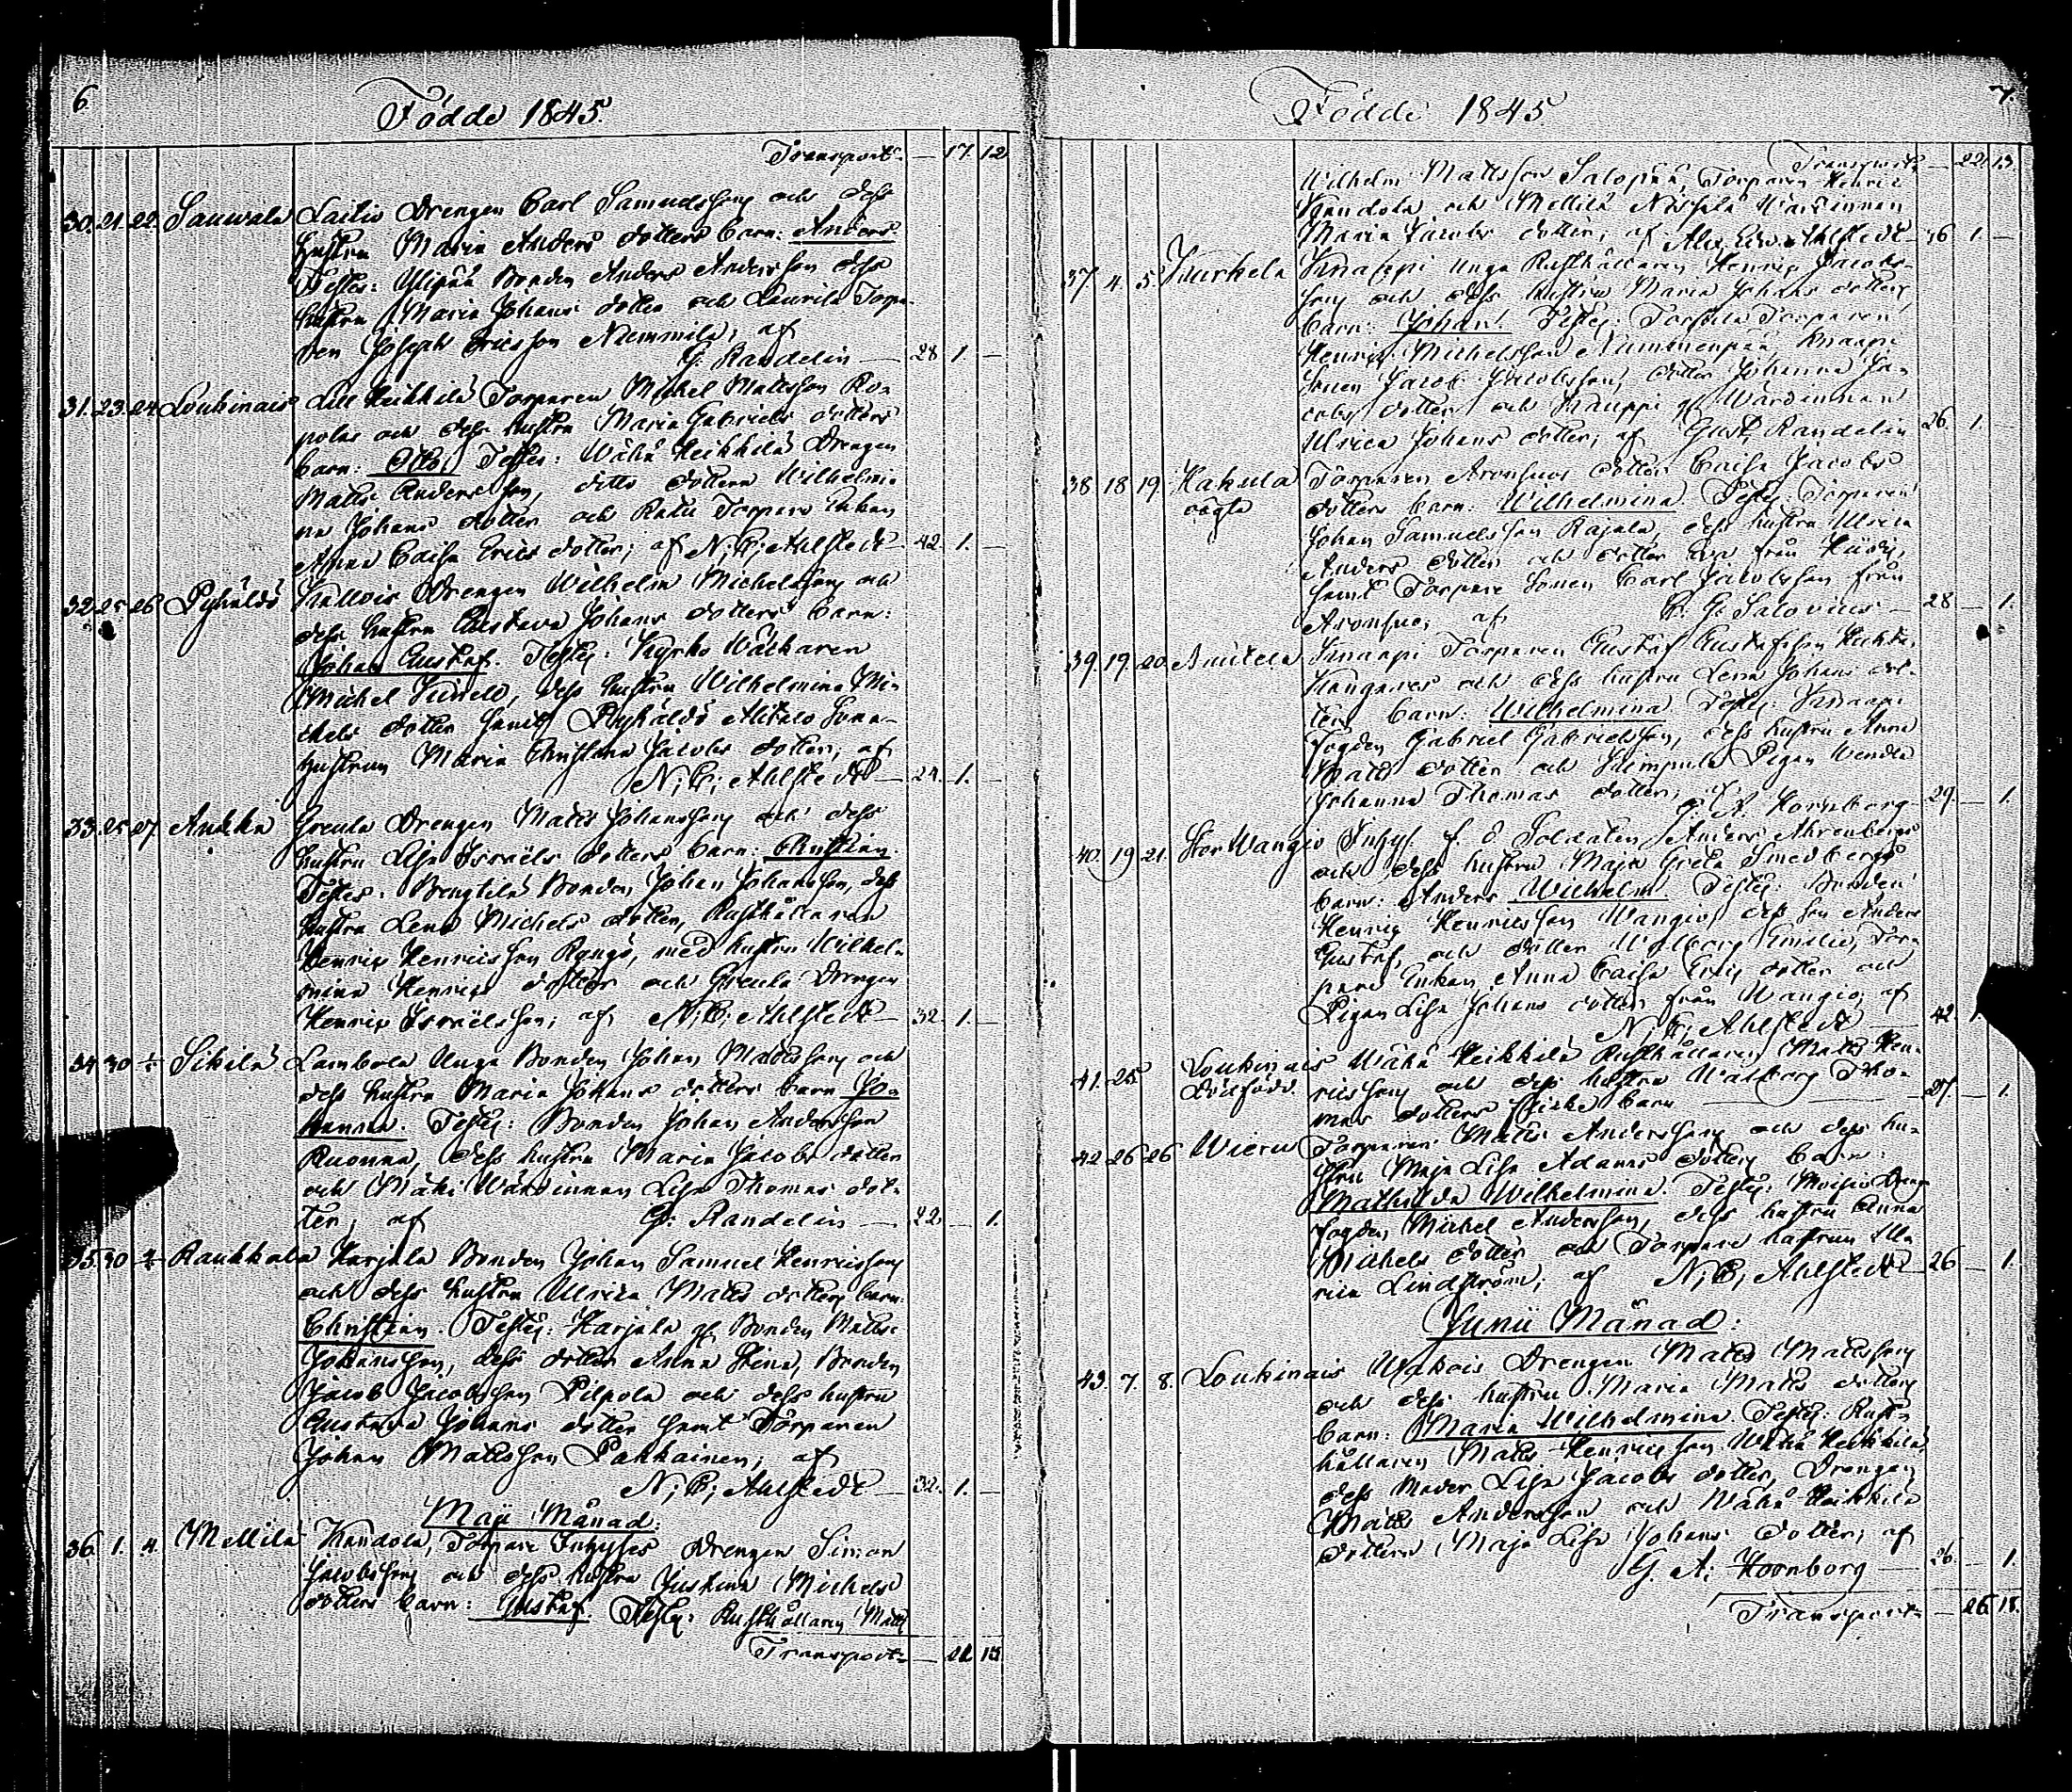 6.
Födde 1845.
Transport — 17. 12
30. 21. 22. Sauwala Laitis Drengen Carl Samuelsson och dess
hustru Maria Anders dotters barn: Anders
Testes: Ylipää Bonden Anders Andersson dess
hustru Maria Johans dotter och Laurila Torpa-
ren Joseph Ericsson Niemmilä, af
G. Randelin — 28 1. —
31. 23. 24. Loukinais Lill Heikkilä Torparen Michel Mattsson Ro-
polas och dess hustru Maria Gabriels dotters
barn: Otto. Testes: Wähä Heikkilä Drengen
Matts Andersson, ditto dottern Wilhelmi-
na Johans dotter och Torpare Enkan
Anna Caisa Erics dotter; af N; E; Ahlstedt — 42. 1. —
32. 25. 26. Pyhäldö Kallois Drengen Wilhelm Michelsson och
dess hustru Gustava Johans dotters barn:
Johan Gustaf. Testes: Kyrko Wäktaren
Michel dess hustru Wilhelmina Mi-
chels dotter samt Pyhäldö Sone-
hustrun Maria Christina Jacobs dotter; af
N; E; Ahlstedt — 24. 1. —
33. 25. 27. Ankka Greula Drengen Matts Johansson och dess
hustru Lisa Israels dotters barn: Christian.
Testes: Bengtilä Bonden Johan Johansson, dess
hustru Lena Michels dotter, Rusthållaren
Henric Henricsson med hustru Wilhel-
mina Henrics dotter och Greula Drengen
Henric Israelsson; af N; E; Ahlstedt — 32. 1. —
34 30 Sikilä Lambola Unga Bonden Johan Mattsson och
dess hustru Maria Johans dotters barn Jo-
hanna. Testes: Bonden Johan Andersson
Ruonna, dess hustru Maria Jacobs dotter
och Mäki Wärdinnan Lisa Thomas dot-
ter; af G: Randelin — 22 — 1.
35. 30 Raukkala Karjala Bonden Johan Samuel Henricsson
och dess hustru Ulrica Matts dotters barn:
Christian. Testes: Karjala gl. Bonden Matts
Johansson, dess dotter Anna Stina, Bonden
Jacob Jacobsson Pilpola och dess hustru
Gustava Johans dotter samt Torparen
Johan Mattsson Pakkainen; af
N; E; Ahlstedt — 32. 1. —
Maji Månad:
36. 1. 4. Mellilä Kandola, Torpare Inhyses Drengen Simon
Jacobsson och dess hustru Justina Michels
dotters barn: Gustaf. Testes: Rusthållaren Matts
Transport — 22 13
7.
Födde 1845
Transport — 22. 13.
Wilhelm Mattsson Salopää, Torparen Henric
Kandola och Mellilä Wärdinnan
Maria Jacobs dotter; af Alex. Edw. Ahlstedt — 36 1. —
37 4. 5. Kurkela Knaapi Unga Rusthållaren Henric Jacobs-
son och dess hustru Maria Johans dotters
barn: Johan. Testes: Torparen
Henric Michelsson Nummenpää, Knaapi
Sonen Jacob Jacobsson, dotter Johanna Ja-
cobs dotter och Kauppi gl Wärdinnan
Ulrica Johans dotter; af Gust. Randelin 26. 1. —
38 18 19. Hakula Torparen Aronsuos dotter Caisa Jacobs
oägta dotters barn: Wilhelmina. Testes: Torparen
Johan Samuelsson Rajala, dess hustru Ulrica
Anders dotter och dotter Eva från
samt Torpare Sonen Carl Jacobsson från
Aronsuo; af Salovius — 28 — 1.
39. 19. 20. Anitela Knaapi Torparen Gustaf Gustafsson Huhta-
Kangares och dess hustru Lena Johans dot-
ters barn: Wilhelmina. Testes: Knaapi
fogden Gabriel Gabrielsson, dess hustru Anna
Matts dotter och Klimpula Pigan Wendla
Johanna Thomas dotter; af G. A. Hornborg — 29. — 1.
40. 19 21. Stor Wangio Inhys. f. d. Soldaten Anders Ahrenbergs
och dess hustru Maja Greta Smedbergs
barn: Anders Wilhelm. Testes: Bonden
Henric Henricsson Wangio, dess son Anders
Gustaf, och dotter Walborg Emilia, Tor-
pare Enkan Anna Caisa Erics dotter och
Pigan Lisa Johans dotter från Wangio; af
N; E; Ahlstedt — 42.
41. 25. Loukinais Wähä Heikkilä Rusthållaren Matts Hen-
dödfödd. ricsson och dess hustru Walborg Tho-
mas dotters flicke barn — 27. — 1.
42. 26 26 Wieru Torparen Matts Andersson och dess hu-
stru Maja Lisa Adams dotters barn:
Mathilda Wilhelmina. Testes: Moisio Drengs
fogden Michel Andersson, dess hustru Anna
Michels dotter och Torpare hustrun Ma-
ria Lindström; af N; E; Ahlstedt — 26 — 1.
Junii Månad:
43. 7. 8. Loukinais Ukkois Drengen Matts Mattsson
och dess hustru Maria Matts dotters
barn: Maria Wilhelmina. Testes: Rust-
hållaren Matts Henricsson Wähä Heikkilä,
dess Moder Lisa Jacobs dotter, Drengen
Matts Andersson och Wähä Heikkilä
dottern Maja Lisa Johans dotter; af
G. A; Hornborg — 26. — 1.
Transport — 26. 18.